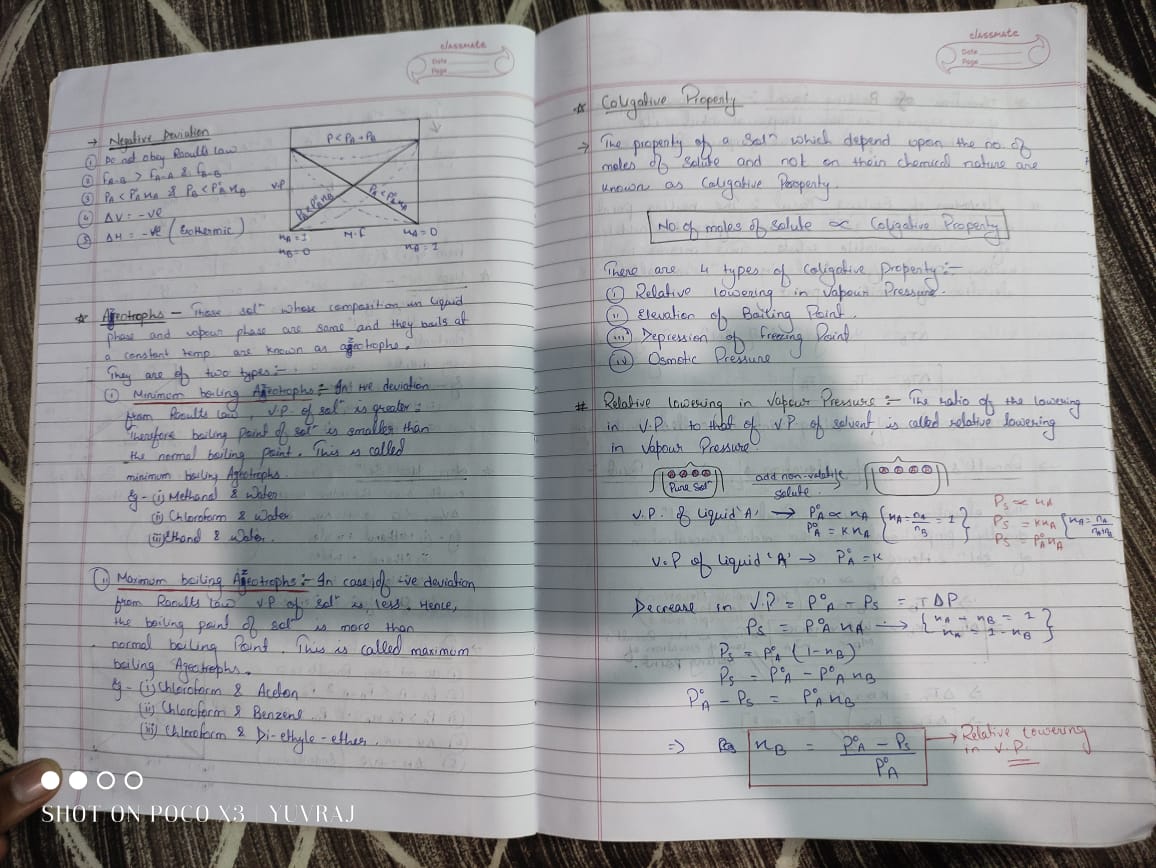 classmate
Date
Page
→ Negative Deviation
① Do not obey Raoults law
② FA-B > FA-A & FB-B
③ PA < P°A xA & PB < P°B xB
④ ΔV = -ve
⑤ ΔH = -ve (Exothermic)
P < PA + PB
V.P
xA = 1
xB = 0
M.F
xA = 0
xB = 1
☆ Azeotrophs - Those solⁿ whose composition in liquid
phase and vapour phase are same and they boils at
a constant temp are known as azeotrophs.
They are of two types:-
① Minimum boiling Azeotrophs:- In +ve deviation
from Raoults law, V.P of solⁿ is greater:
Therefore boiling point of solⁿ is smaller than
the normal boiling point. This is called
minimum boiling Azeotrophs.
Eg- (i) Methanol & Water
(ii) Chloroform & Water
(iii) Ethanol & Water.
(ii) Maximum boiling Azeotrophs:- In case of -ve deviation
from Raoults law VP of solⁿ is less. Hence,
the boiling point of solⁿ is more than
normal boiling Point. This is called maximum
boiling Azeotrophs.
Eg- (i) Chloroform & Aceton
(ii) Chloroform & Benzene.
(iii) Chloroform & Di-ethyle-ether.
classmate
Date
Page
☆ Coligative Property
→ The property of a Solⁿ which depend upon the no. of
moles of solute and not on their chemical nature are
known as Coligative Property.
No. of moles of solute ∝ Coligative Property
There are 4 types of Coligative Property:-
(i) Relative lowering in Vapour Pressure.
(ii) Elevation of Boiling Point.
(iii) Depression of Freezing Point
(iv) Osmotic Pressure
# Relative lowering in Vapour Pressure:- The ratio of the lowering
in V.P to that of VP of solvent is called relative lowering
in Vapour Pressure.
Pure Solⁿ
add non-volatile
solute.
V.P. of liquid 'A' → P°A ∝ xA { xA = nA/nB = 1 }
P°A = KxA
Ps ∝ xA
Ps = KxA
Ps = P°A xA
V.P of liquid 'A' → P°A = K
Decrease in V.P = P°A - Ps = ΔP
Ps = P°A xA → { xA + xB = 1
xA = 1 - xB }
Ps = P°A (1-xB)
Ps = P°A - P°A xB
P°A - Ps = P°A xB
⇒ xB = P°A - Ps / P°A → Relative lowering
in V.P.
SHOT ON POCO X3 | YUVRAJ